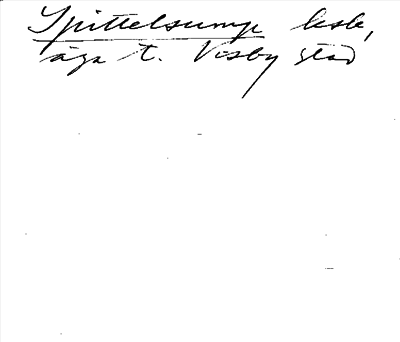 Spittelsump lesb,
äga t. Visby stad